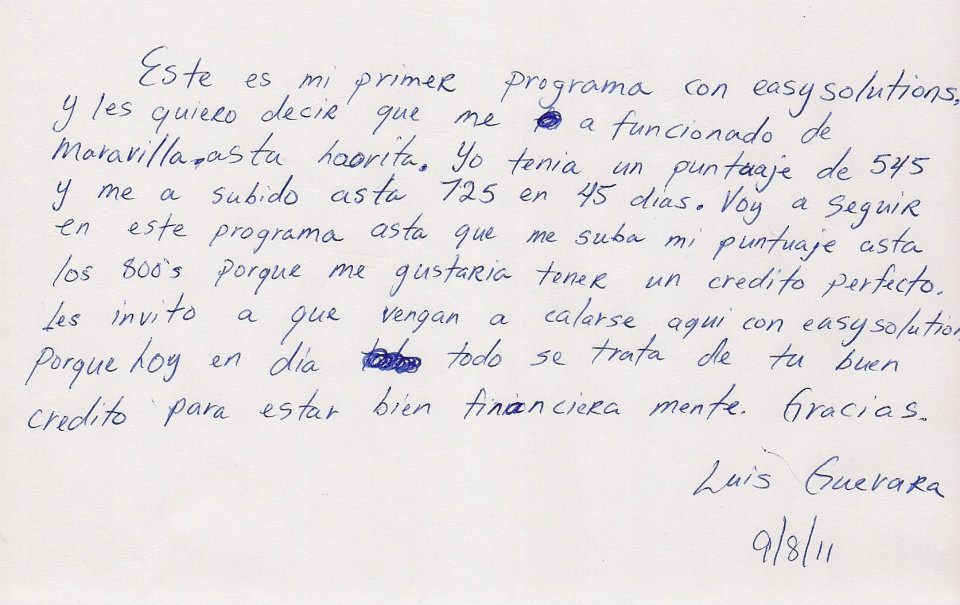 Este es mi primer programa con easysolutions.
y les quiero decir que me a funcionado de
Maravilla. asta hoorita. Yo tenia un puntuaje de 545
y me a subido asta 725 en 45 dias. Voy a seguir
en este programa asta que me suba mi puntuaje asta
los 800's porque me gustaria tener un credito perfecto.
Les invito a que vengan a calarse aqui con easysolution
Porque hoy en día todo se trata de tu buen
credito para estar bien financiera mente. Gracias.
Luis Guevara
9/8/11